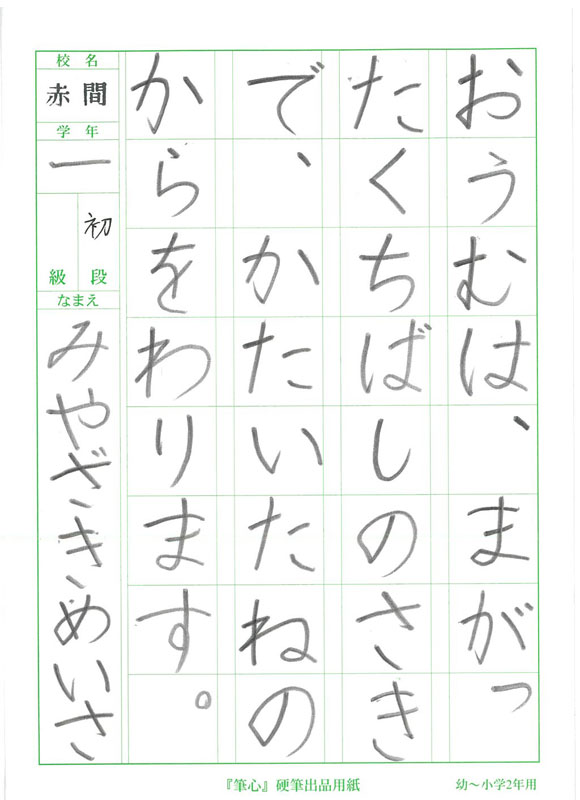 おうむは、まがっ
たくちばしのさき
で、かたいたねの
からをわります。
校名
赤間
学年
一
初
級 段
なまえ
みやざきめいさ
『筆心』硬筆出品用紙
幼〜小学2年用